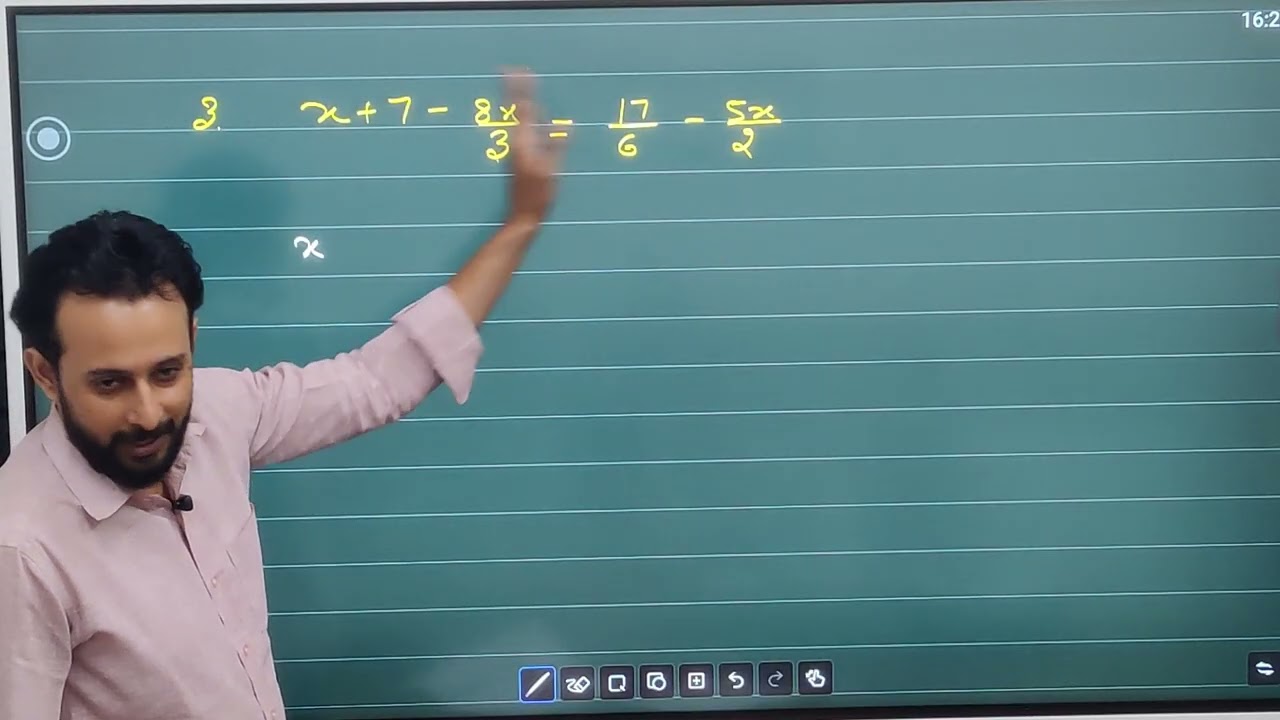 16:2
3. x + 7 - 8x/3 = 17/6 - 5x/2
x